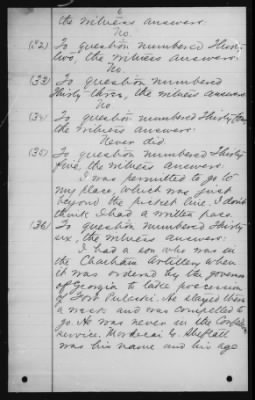 6
the witness answers:
No.
(32) To question numbered Thirty
two, the witness answers:
No.
(33) To question numbered
Thirty three, the witness answers:
No.
(34) To question numbered Thirty four
the witness answers:
Never did.
(35) To question numbered Thirty
five, the witness answers:
I was permitted to go to
my place, which was just
beyond the picket line. I don't
think I had a written pass.
(36) To question numbered Thirty
six, the witness answers:
I had a son who was in
the Chatham Artillery when
it was ordered by the governor
of Georgia to take possession
of Fort Pulaski. He stayed there
a week and was compelled to
go. He was never in the Confed.
service. Mordecai G. Sheftall
was his name and his age